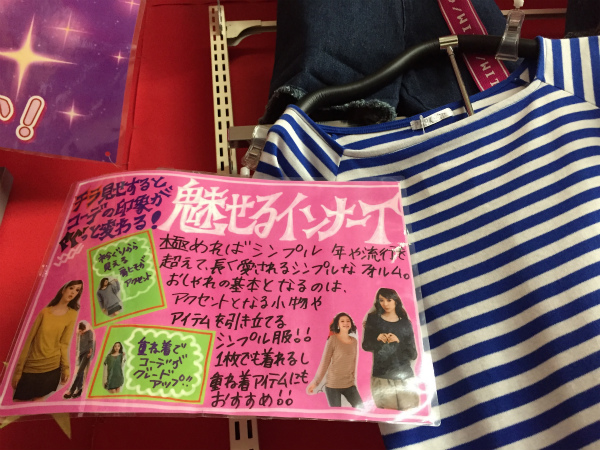 チラ見せすると
コーデの印象が
変わる!
魅せるインナーT
極めればシンプル 年や流行を
超えて、長く愛されるシンプルなフォルム。
おしゃれの基本となるのは、
アクセントとなる小物や
アイテムを引き立てる
シンプル服!!
1枚でも着れるし
重ね着アイテムにも
おすすめ!!
見える
アクセント
重ね着で
コーデが
グレード
アップ!!
い!